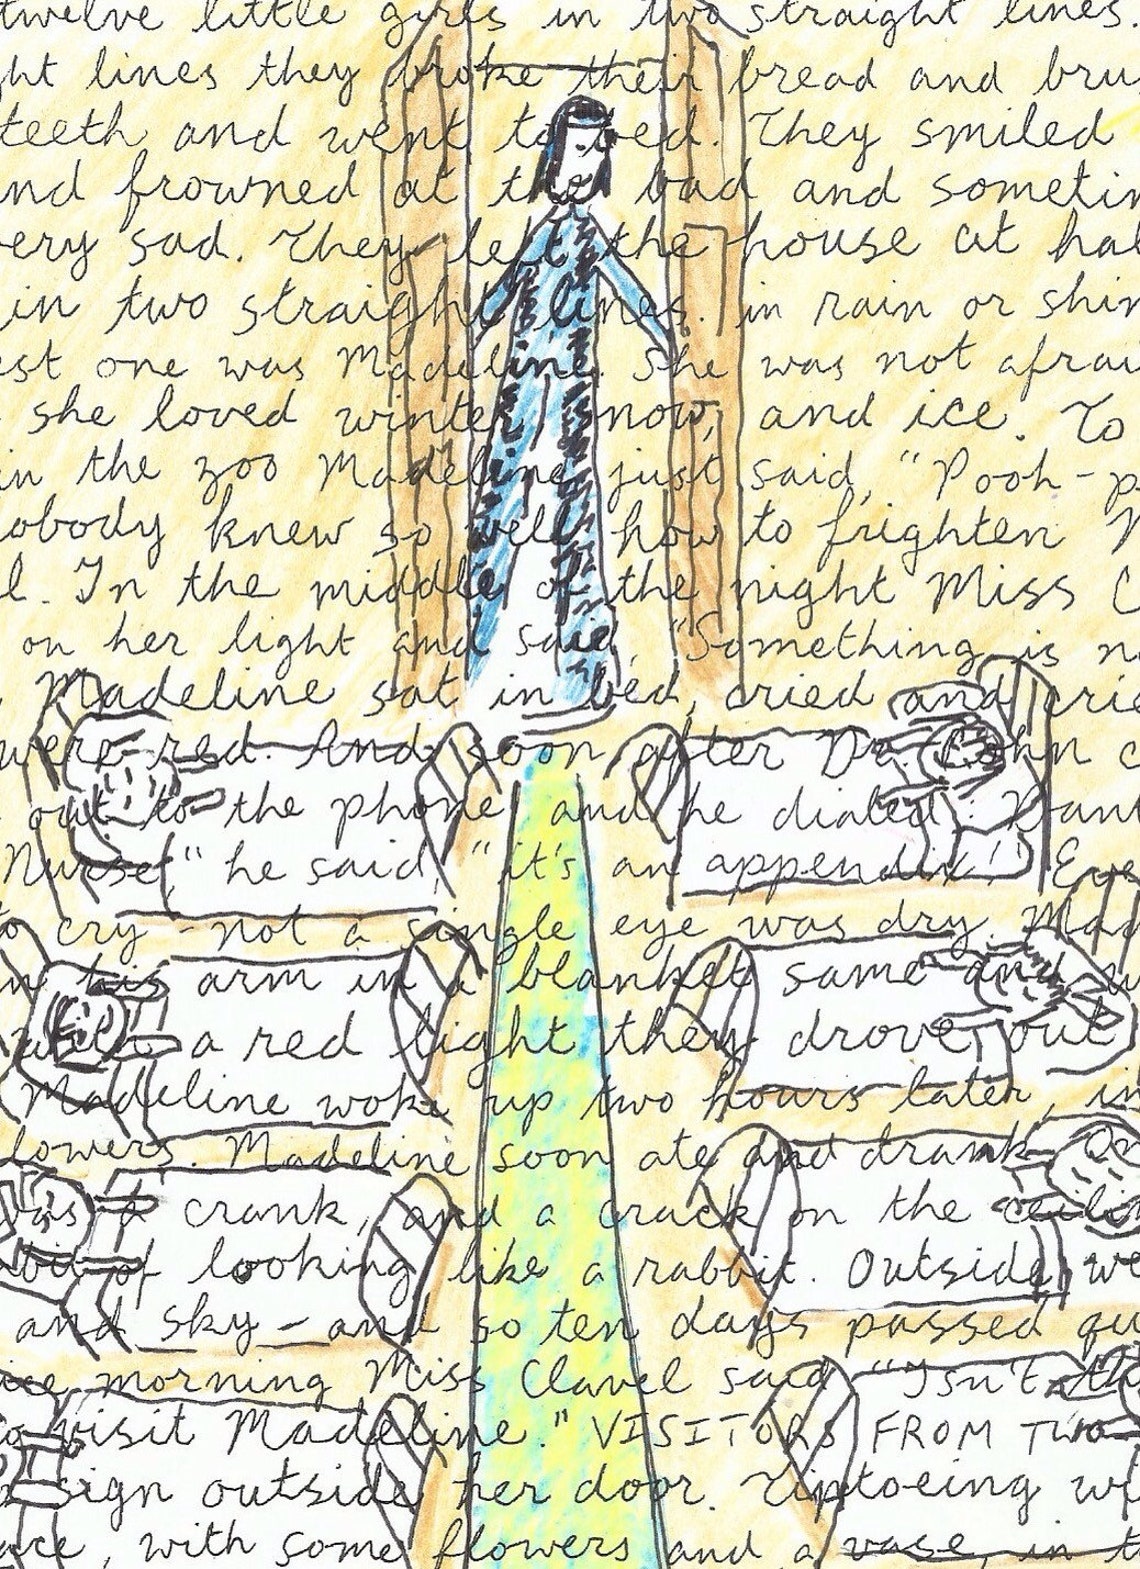 twelve little girls in two straight lines.
ght lines they broke their bread and bru
teeth and went to bed. They smiled
nd frowned at the bad and sometim
ery sad. They left the house at hal
in two straight lines. in rain or shin
est one was Madeline. She was not afrai
she loved winter, snow, and ice. To
in the zoo Madeline just said, "Pooh-p
obody knew so well how to frighten M
l. In the middle of the night Miss C
on her light and said, "Something is n
Madeline sat in bed, cried and crie
were red. And soon after Dr. Cohn c
out to the phone and he dialed: Dant
Nurse," he said, "it's an appendix!" Eve
to cry - not a single eye was dry. Mad
in his arm in a blanket same and w
with a red light they drove out
Madeline woke up two hours later, in
lowers. Madeline soon ate and drank. On
was a crank, and a crack on the ceilin
bit of looking like a rabbit. Outside we
and sky - and so ten days passed qu
ice morning Miss Clavel said "Isn't thi
to visit Madeline." VISITORS FROM TWO
sign outside her door. Tiptoeing wi
ace, with some flowers and a vase, in t